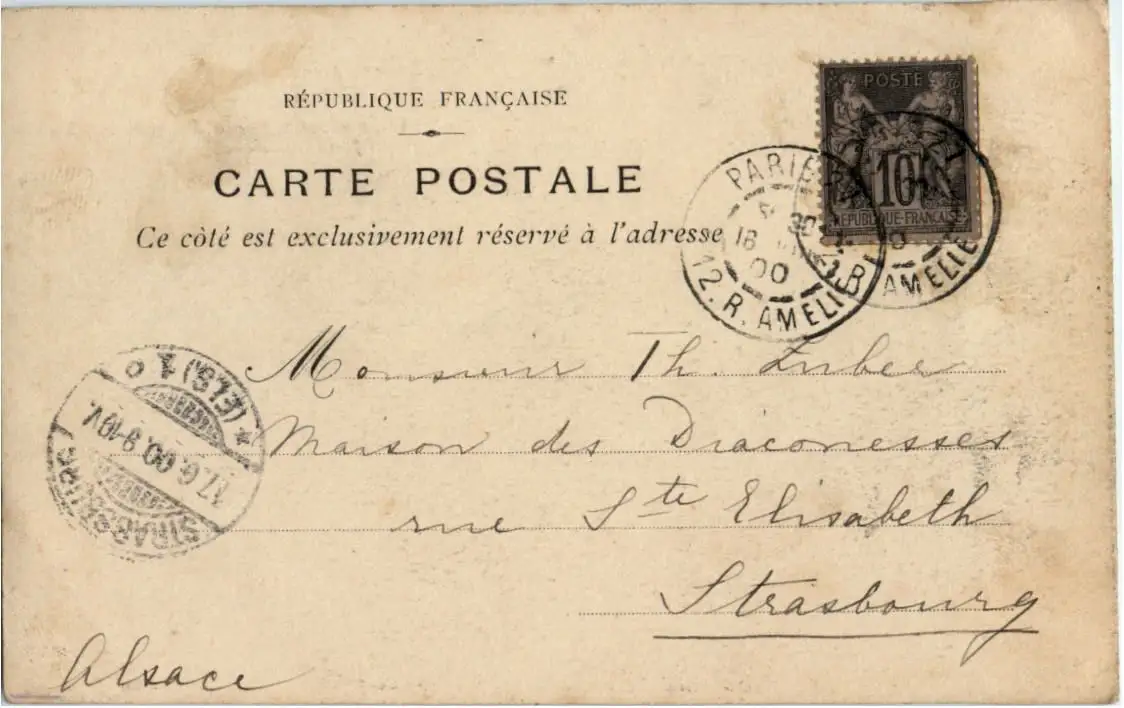 RÉPUBLIQUE FRANÇAISE
POSTE
CARTE POSTALE
10
RÉPUBLIQUE FRANÇAISE
Ce côté est exclusivement réservé à l'adresse
PARIS
16
00
12. R. AMELIE
AMELIE
Monsieur Th. Zuber
(ELS.) 1 o
17.6.00.9-10V.
STRASSBURG
Maison des Diaconesses
rue Ste Elisabeth
Strasbourg
Alsace